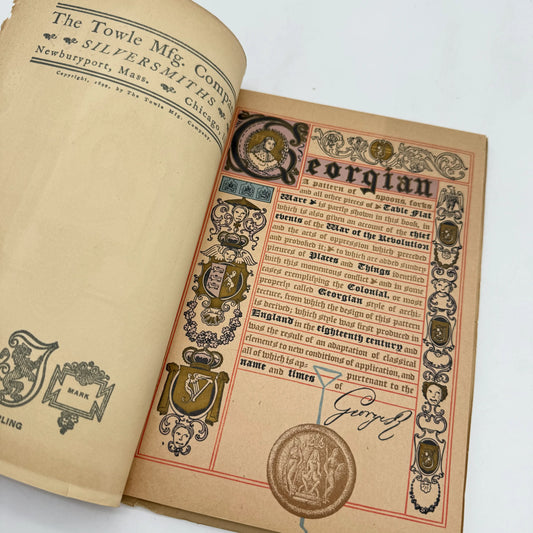 The Towle Mfg. Compa
SILVERSMITHS
Newburyport, Mass. Chicago,
Copyright, 1898, by The Towle Mfg. Company.
MARK
RLING
Georgian
A pattern of spoons, forks
and all other pieces of Table Flat
Ware is partly shown in this book, in
which is also given an account of the chief
events of the War of the Revolution
and the acts of oppression which preceded
and provoked it; to which are added sundry
pictures of Places and Things identified
with this momentous conflict and in some
cases exemplifying the Colonial, or most
properly called Georgian style of archi-
tecture, from which the design of this pattern
is derived; which style was first produced in
England in the eighteenth century and
was the result of an adaptation of classical
elements to new conditions of application, and
all of which is ap- purtenant to the
name and times of
George R